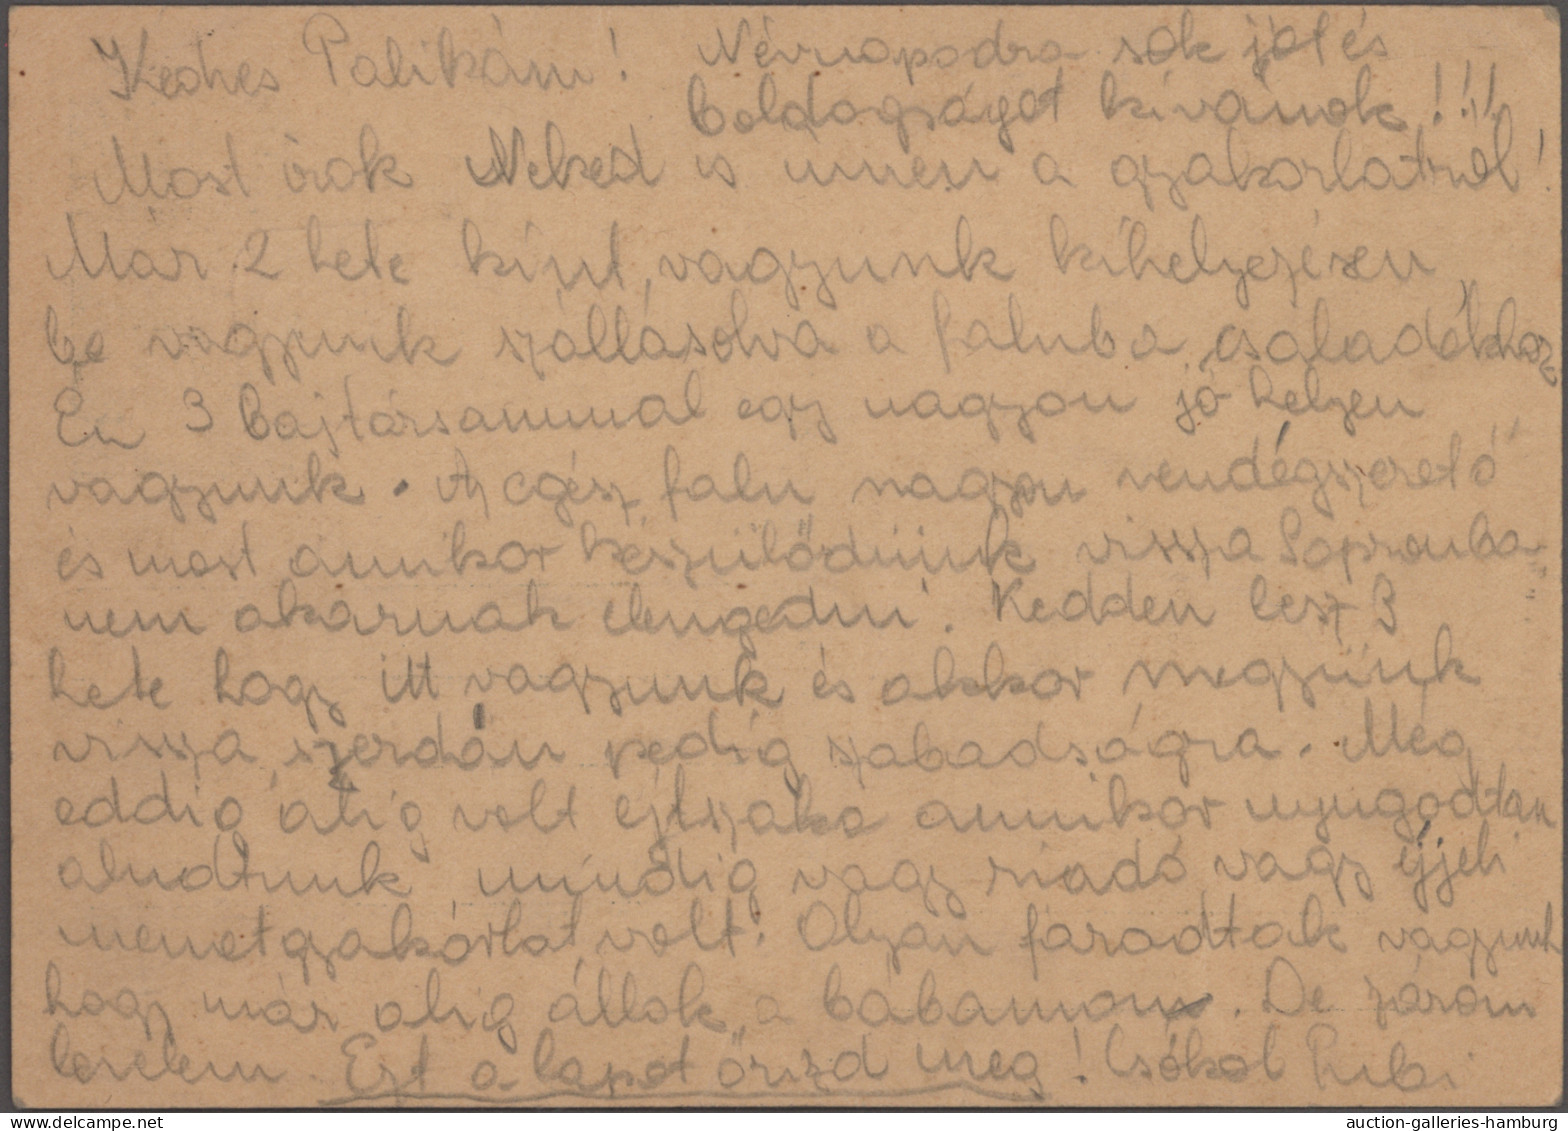 Kedves Palikám! Névnapodra sok jót és
boldogságot kívánok!!!!
Most irok Neked is innen a gyakorlatról!
Már 2 hete kint vagyunk kihelyezésen
be vagyunk szállásolva a faluba családokhoz
Én 3 bajtársammal egy nagyon jó helyen
vagyunk. Az egész falu nagyon vendégszerető
és most amikor készülődünk vissza Sopronba
nem akarnak elengedni. Kedden lesz 3
hete hogy itt vagyunk és akkor megyünk
vissza, szerdán pedig szabadságra. Még
eddig alig volt éjtszaka amikor nyugodtan
aludtunk mindig vagy riadó vagy éjjeli
menetgyakorlat volt. Olyan faradtak vagyunk
hogy már alig állok a lábamon. De zárom
levelem. Ezt a lapot őrizd meg! Csókol
auction-galleries-hamburg